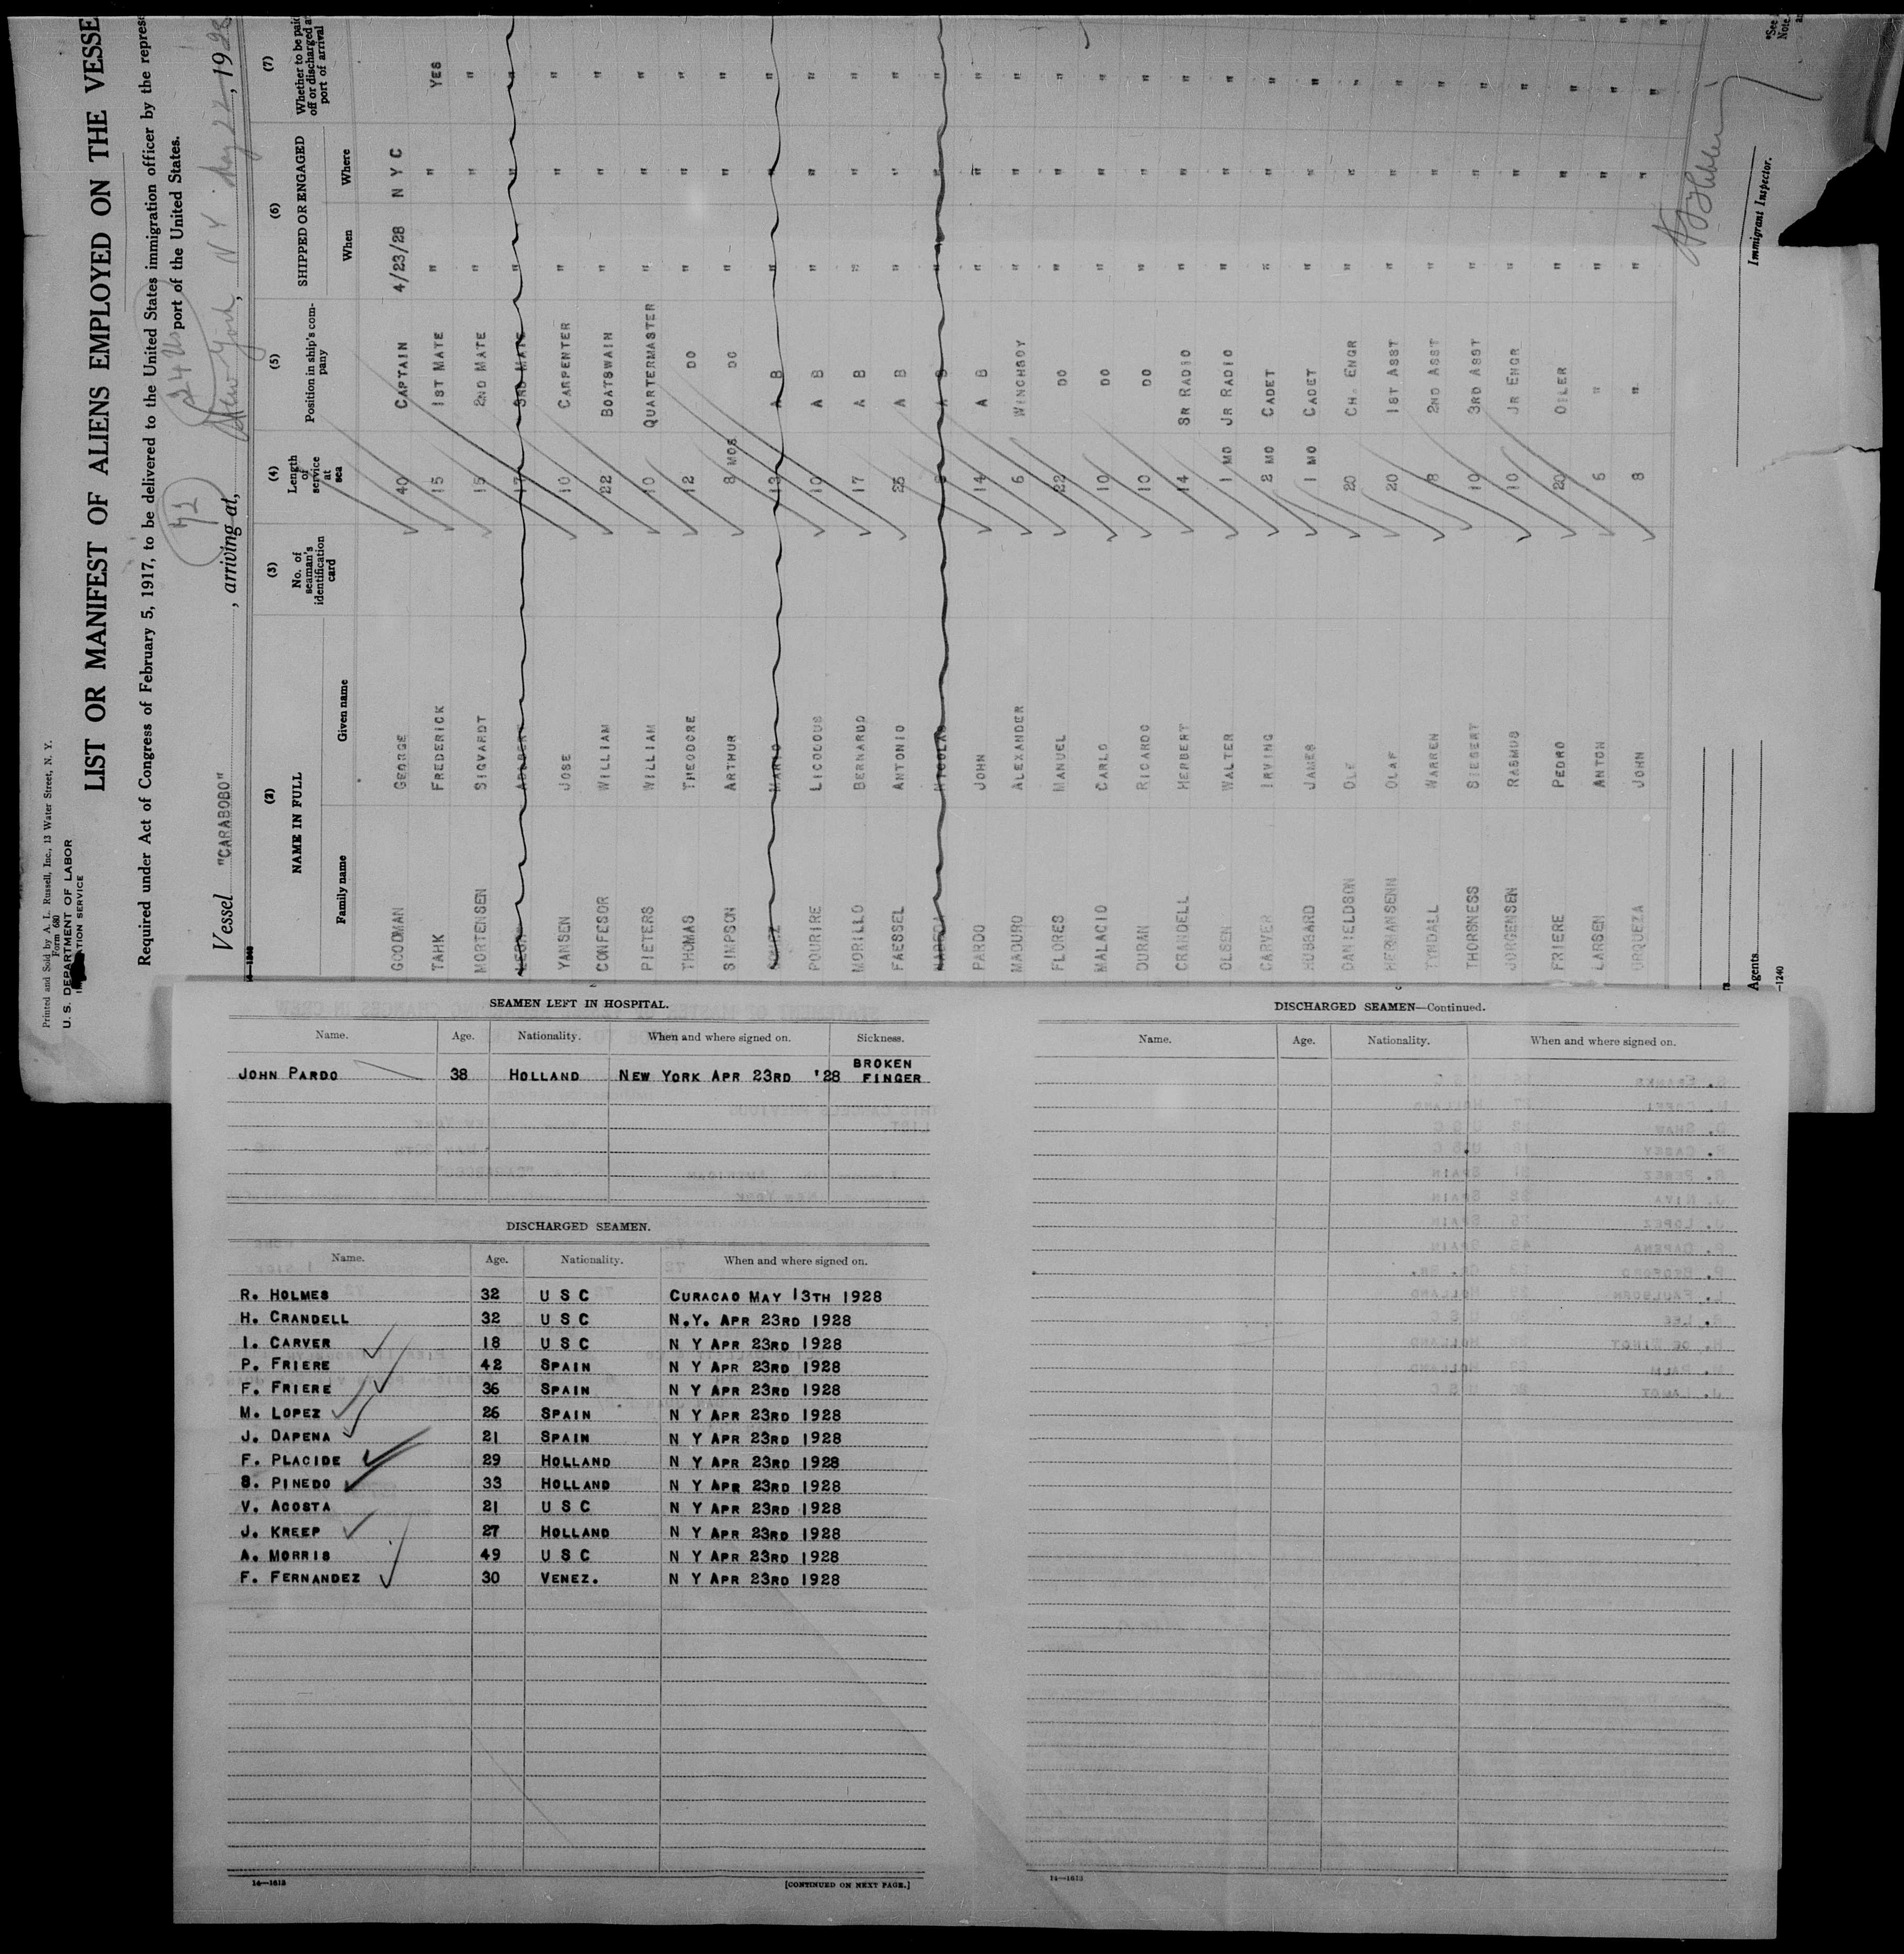 Printed and Sold by A. L. Russell, Inc., 13 Water Street, N. Y.
Form 680
U. S. DEPARTMENT OF LABOR
LIST OR MANIFEST OF ALIENS EMPLOYED ON THE VESSE
Required under Act of Congress of February 5, 1917, to be delivered to the United States immigration officer by the represe
port of the United States.
72
Vessel "CARABOBO" , arriving at, New York, N Y May 22, 1928
(2) (3) (4) (5) (6) (7)
NAME IN FULL No. of seaman's identification card Length of service at sea Position in ship's company SHIPPED OR ENGAGED Whether to be paid off or discharged at port of arrival
Family name Given name When Where
GOODMAN GEORGE 40 CAPTAIN 4/23/28 N Y C
TAHK FREDERICK 15 1ST MATE " " YES
MORTENSEN SIGVARDT 15 2ND MATE " " "
17 3RD MATE " " "
YANSEN JOSE 10 CARPENTER " " "
CONFESOR WILLIAM 22 BOATSWAIN " " "
PIETERS WILLIAM 10 QUARTERMASTER " " "
THOMAS THEODORE 12 DO " " "
SIMPSON ARTHUR 8 MOS DO " " "
GOMEZ MARIO 13 A B " " "
POURIRE LICODOUS 10 A B " " "
MORILLO BERNARDO 17 A B " " "
FAESSEL ANTONIO 25 A B " " "
NICOLAS A B " " "
PARDO JOHN 14 A B " " "
MADURO ALEXANDER 6 WINCHBOY " " "
FLORES MANUEL 22 DO " " "
MALACIO CARLO 10 DO " " "
DURAN RICARDO 10 DO " " "
CRANDELL HERBERT 14 SR RADIO " " "
OLSEN WALTER 1 MO JR RADIO " " "
CARVER IRVING 2 MO CADET " " "
HUBBARD JAMES 1 MO CADET " " "
DANIELDSON OLE 20 CH. ENGR " " "
HERMANSENN OLAF 20 1ST ASST " " "
TYNDALL WARREN 8 2ND ASST " " "
THORSNESS SIEGERT 10 3RD ASST " " "
JORGENSEN RASMUS 10 JR ENGR " " "
FRIERE PEDRO 20 OILER " " "
LARSEN ANTON 6 " " " "
URQUEZA JOHN 8 " " " "
Agents
Immigrant Inspector.
SEAMEN LEFT IN HOSPITAL.
Name. Age. Nationality. When and where signed on. Sickness.
JOHN PARDO 38 HOLLAND NEW YORK APR 23RD '28 BROKEN FINGER
DISCHARGED SEAMEN.
Name. Age. Nationality. When and where signed on.
R. HOLMES 32 U S C CURACAO MAY 13TH 1928
H. CRANDELL 32 U S C N.Y. APR 23RD 1928
I. CARVER 18 U S C N Y APR 23RD 1928
P. FRIERE 42 SPAIN N Y APR 23RD 1928
F. FRIERE 36 SPAIN N Y APR 23RD 1928
M. LOPEZ 26 SPAIN N Y APR 23RD 1928
J. DAPENA 21 SPAIN N Y APR 23RD 1928
F. PLACIDE 29 HOLLAND N Y APR 23RD 1928
S. PINEDO 33 HOLLAND N Y APR 23RD 1928
V. ACOSTA 21 U S C N Y APR 23RD 1928
J. KREEP 27 HOLLAND N Y APR 23RD 1928
A. MORRIS 49 U S C N Y APR 23RD 1928
F. FERNANDEZ 30 VENEZ. N Y APR 23RD 1928
14—1613
[CONTINUED ON NEXT PAGE.]
DISCHARGED SEAMEN—Continued.
Name. Age. Nationality. When and where signed on.
14—1613